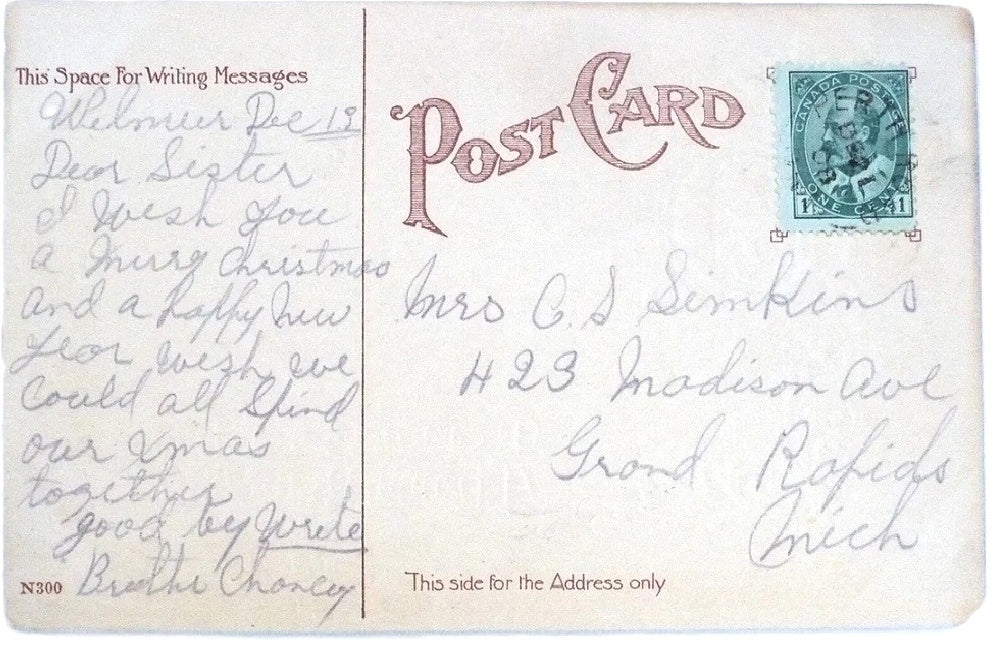 This Space For Writing Messages
Dec 19
Dear Sister
I Wish you
a Merry Christmas
and a happy New
Year wish we
could all Spend
our Xmas
together
good by Write
Chancey
N300
POST CARD
CANADA POSTAGE
ONE CENT
1 1
PERTH
DE 21
08
Mrs C. S Simkins
423 Madison Ave
Grand Rapids
Mich
This side for the Address only